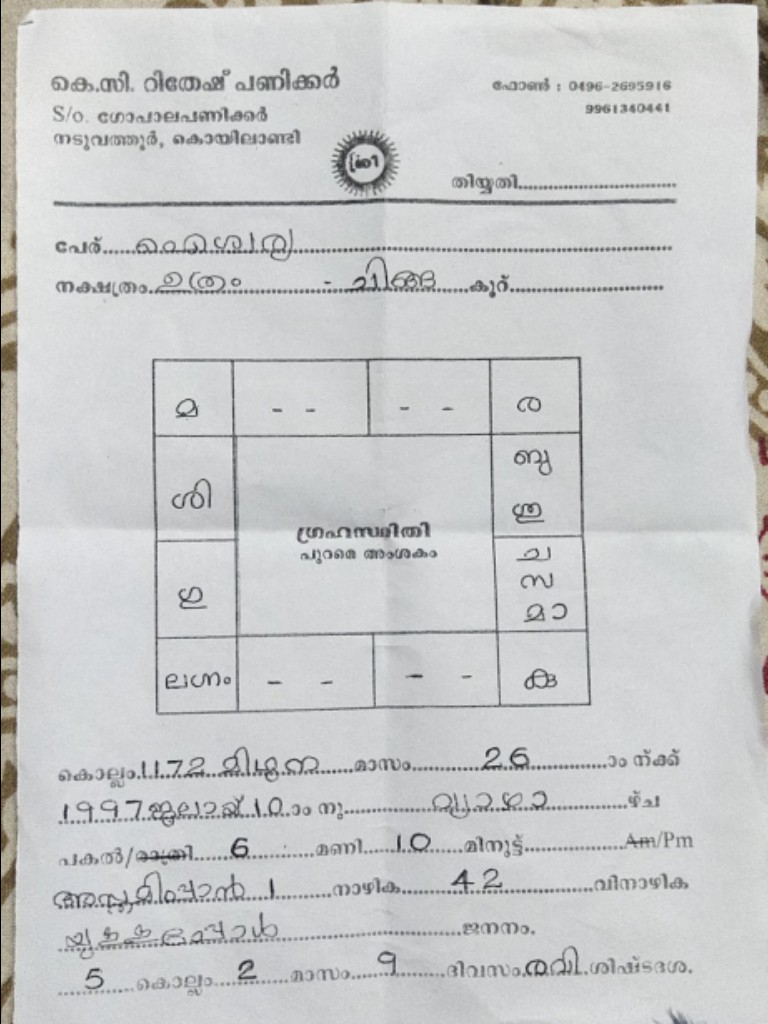 കെ.സി. റിതേഷ് പണിക്കർ
S/o. ഗോപാലപണിക്കർ
നടുവത്തൂർ, കൊയിലാണ്ടി
ഫോൺ : 0496-2695916
9961340441
തിയ്യതി
പേര് ഐശ്വര്യ
നക്ഷത്രം ഉത്രം - ചിങ്ങ കൂറ്
മ - - - - ര
ശി ബു ശു
ഗ്രഹസ്ഥിതി
പുറമെ അംശകം
ഗു ച സ മാ
ലഗ്നം - - - - കു
കൊല്ലം 1172 മിഥുന മാസം 26 ാം ന്ക്ക്
1997 ജൂലായ് 10 ാം നു വ്യാഴാ ഴ്ച
പകൽ/രാത്രി 6 മണി 10 മിനുട്ട് Am/Pm
അസ്തമിപ്പാൻ 1 നാഴിക 42 വിനാഴിക
ജനനം.
5 കൊല്ലം 2 മാസം 9 ദിവസം രവി ശിഷ്ടദശ.